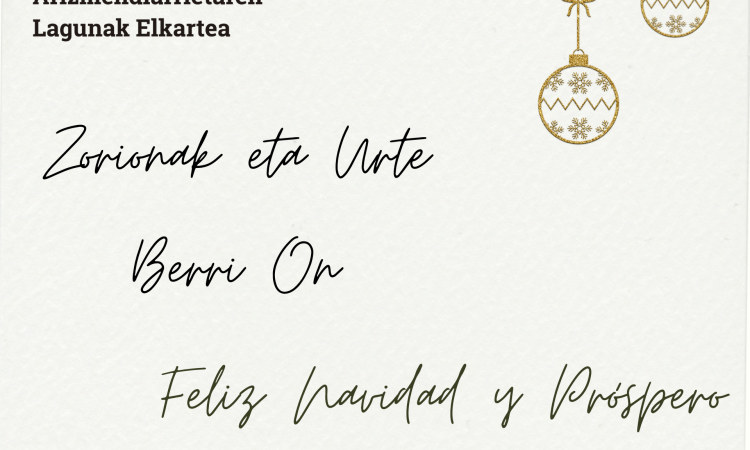 Arizmendiarrietaren
Lagunak Elkartea
Zorionak eta Urte
Berri On
Feliz Navidad y Próspero